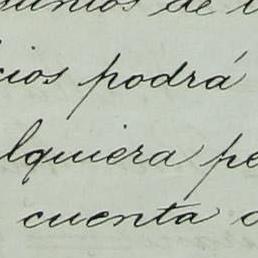 suntos de l
cios podrá
alquiera pe
cuenta